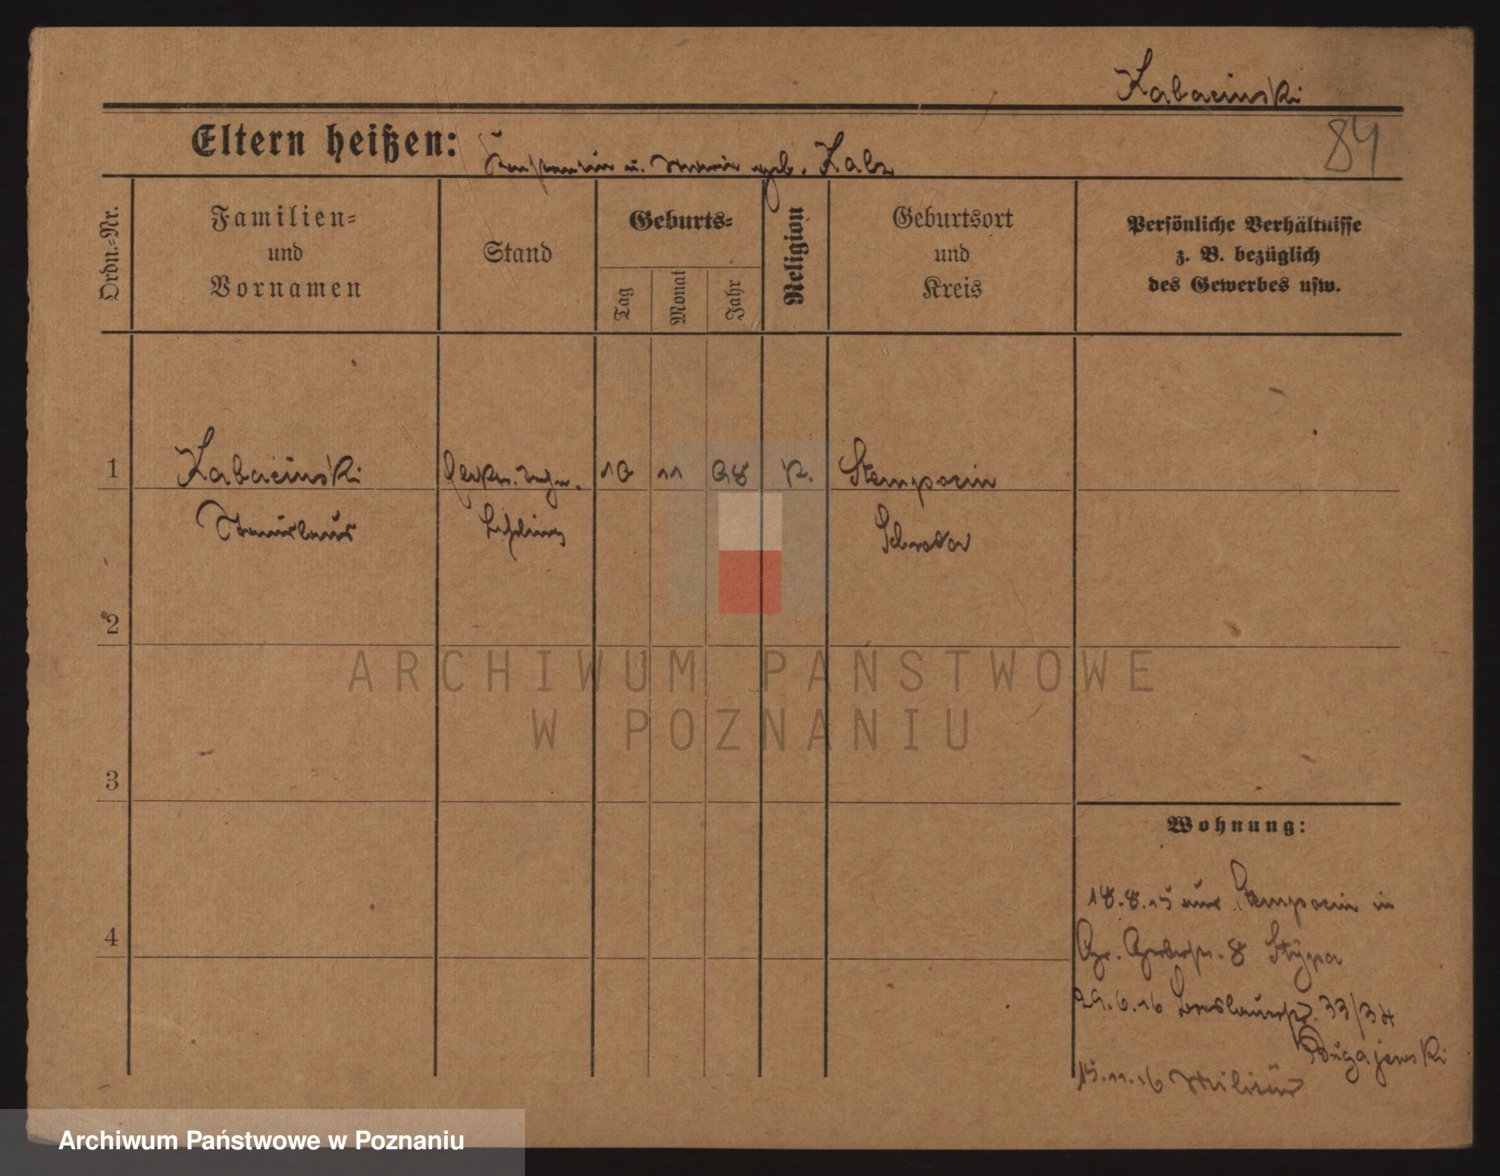 Kabacinski
84
Eltern heißen: Konstantin u. Maria geb. Kalz
Ordn.=Nr.
Familien=
und
Vornamen
Stand
Geburts=
Tag
Monat
Jahr
Religion
Geburtsort
und
Kreis
Persönliche Verhältnisse
z. B. bezüglich
des Gewerbes usw.
1 Kabacinski 10 11 98 K. Stempocin
Stanislaus Lehrling Schroda
2
ARCHIWUM PAŃSTWOWE
W POZNANIU
3
Wohnung:
4
18.8.15 aus Stempocin in
Gr. Gerberstr. 8 Stypa
29.6.16 Breslauerstr. 33/34
Bugajewski
15.11.16 Militär
Archiwum Państwowe w Poznaniu